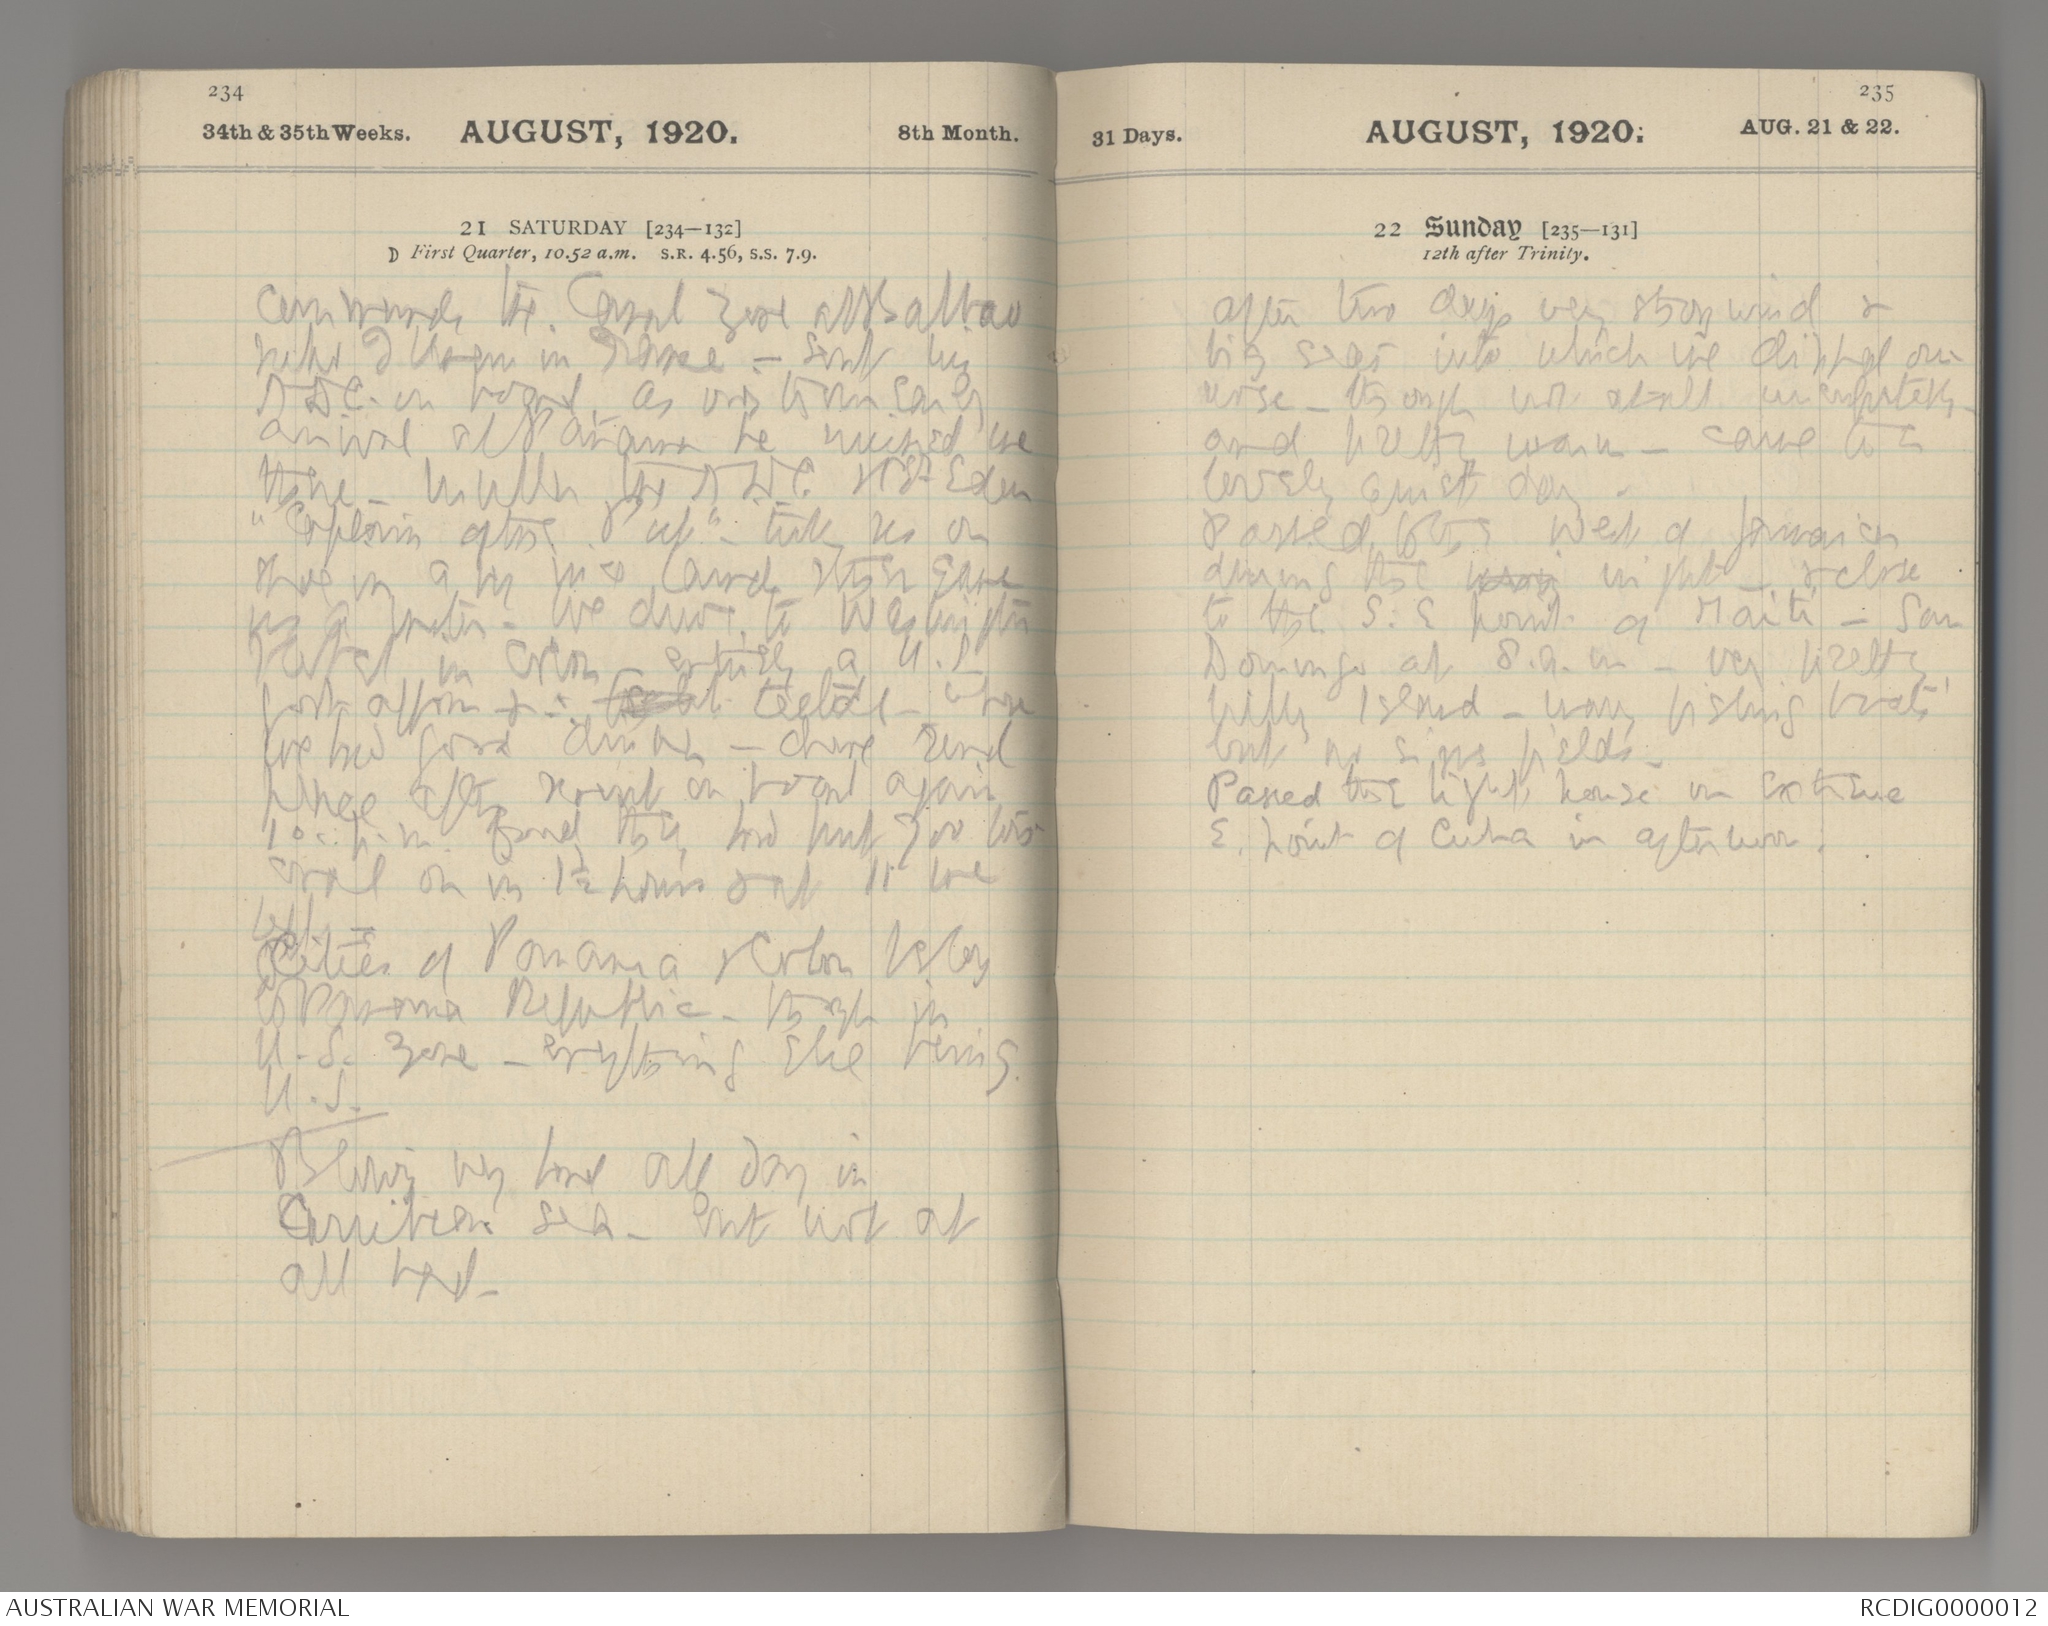 234
34th & 35th Weeks. AUGUST, 1920. 8th Month.
21 SATURDAY [234—132]
☽ First Quarter, 10.52 a.m. S.R. 4.56, S.S. 7.9.
commands the Canal Zone at Balboa
in France — sent his
A.D.C. on board, as owing to our early
arrival at Panama he missed us
there — the A.D.C.
"Captain" — took us on
shore in a
— we drove to Washington
Hotel in Colon — entirely a U.S.
Govt affair & hotel — where
we had good dinner — drove round
place after & went on board again
10. p.m. found they had put 700 tons
coal on in 1½ hours & at 11 we
left
Cities of Panama & Colon belong
to Panama Republic — though in
U.S. Zone — everything else being
U.S.
Blowing very hard all day in
Carribean sea — but not at
all bad —
31 Days. AUGUST, 1920. AUG. 21 & 22.
235
22 Sunday [235—131]
12th after Trinity.
after two days very strong wind &
big seas into which we dipped our
nose — though not at all uncomfortable —
and pretty warm — came to a
lovely quiet day —
Passed West of Jamaica
during the night — & close
to the S.E point of Haiti — San
Domingo at 8.a.m — very pretty
hilly Island — many fishing boats
but no signs fields —
Passed the light house on extreme
E. point of Cuba in afternoon.
AUSTRALIAN WAR MEMORIAL
RCDIG0000012